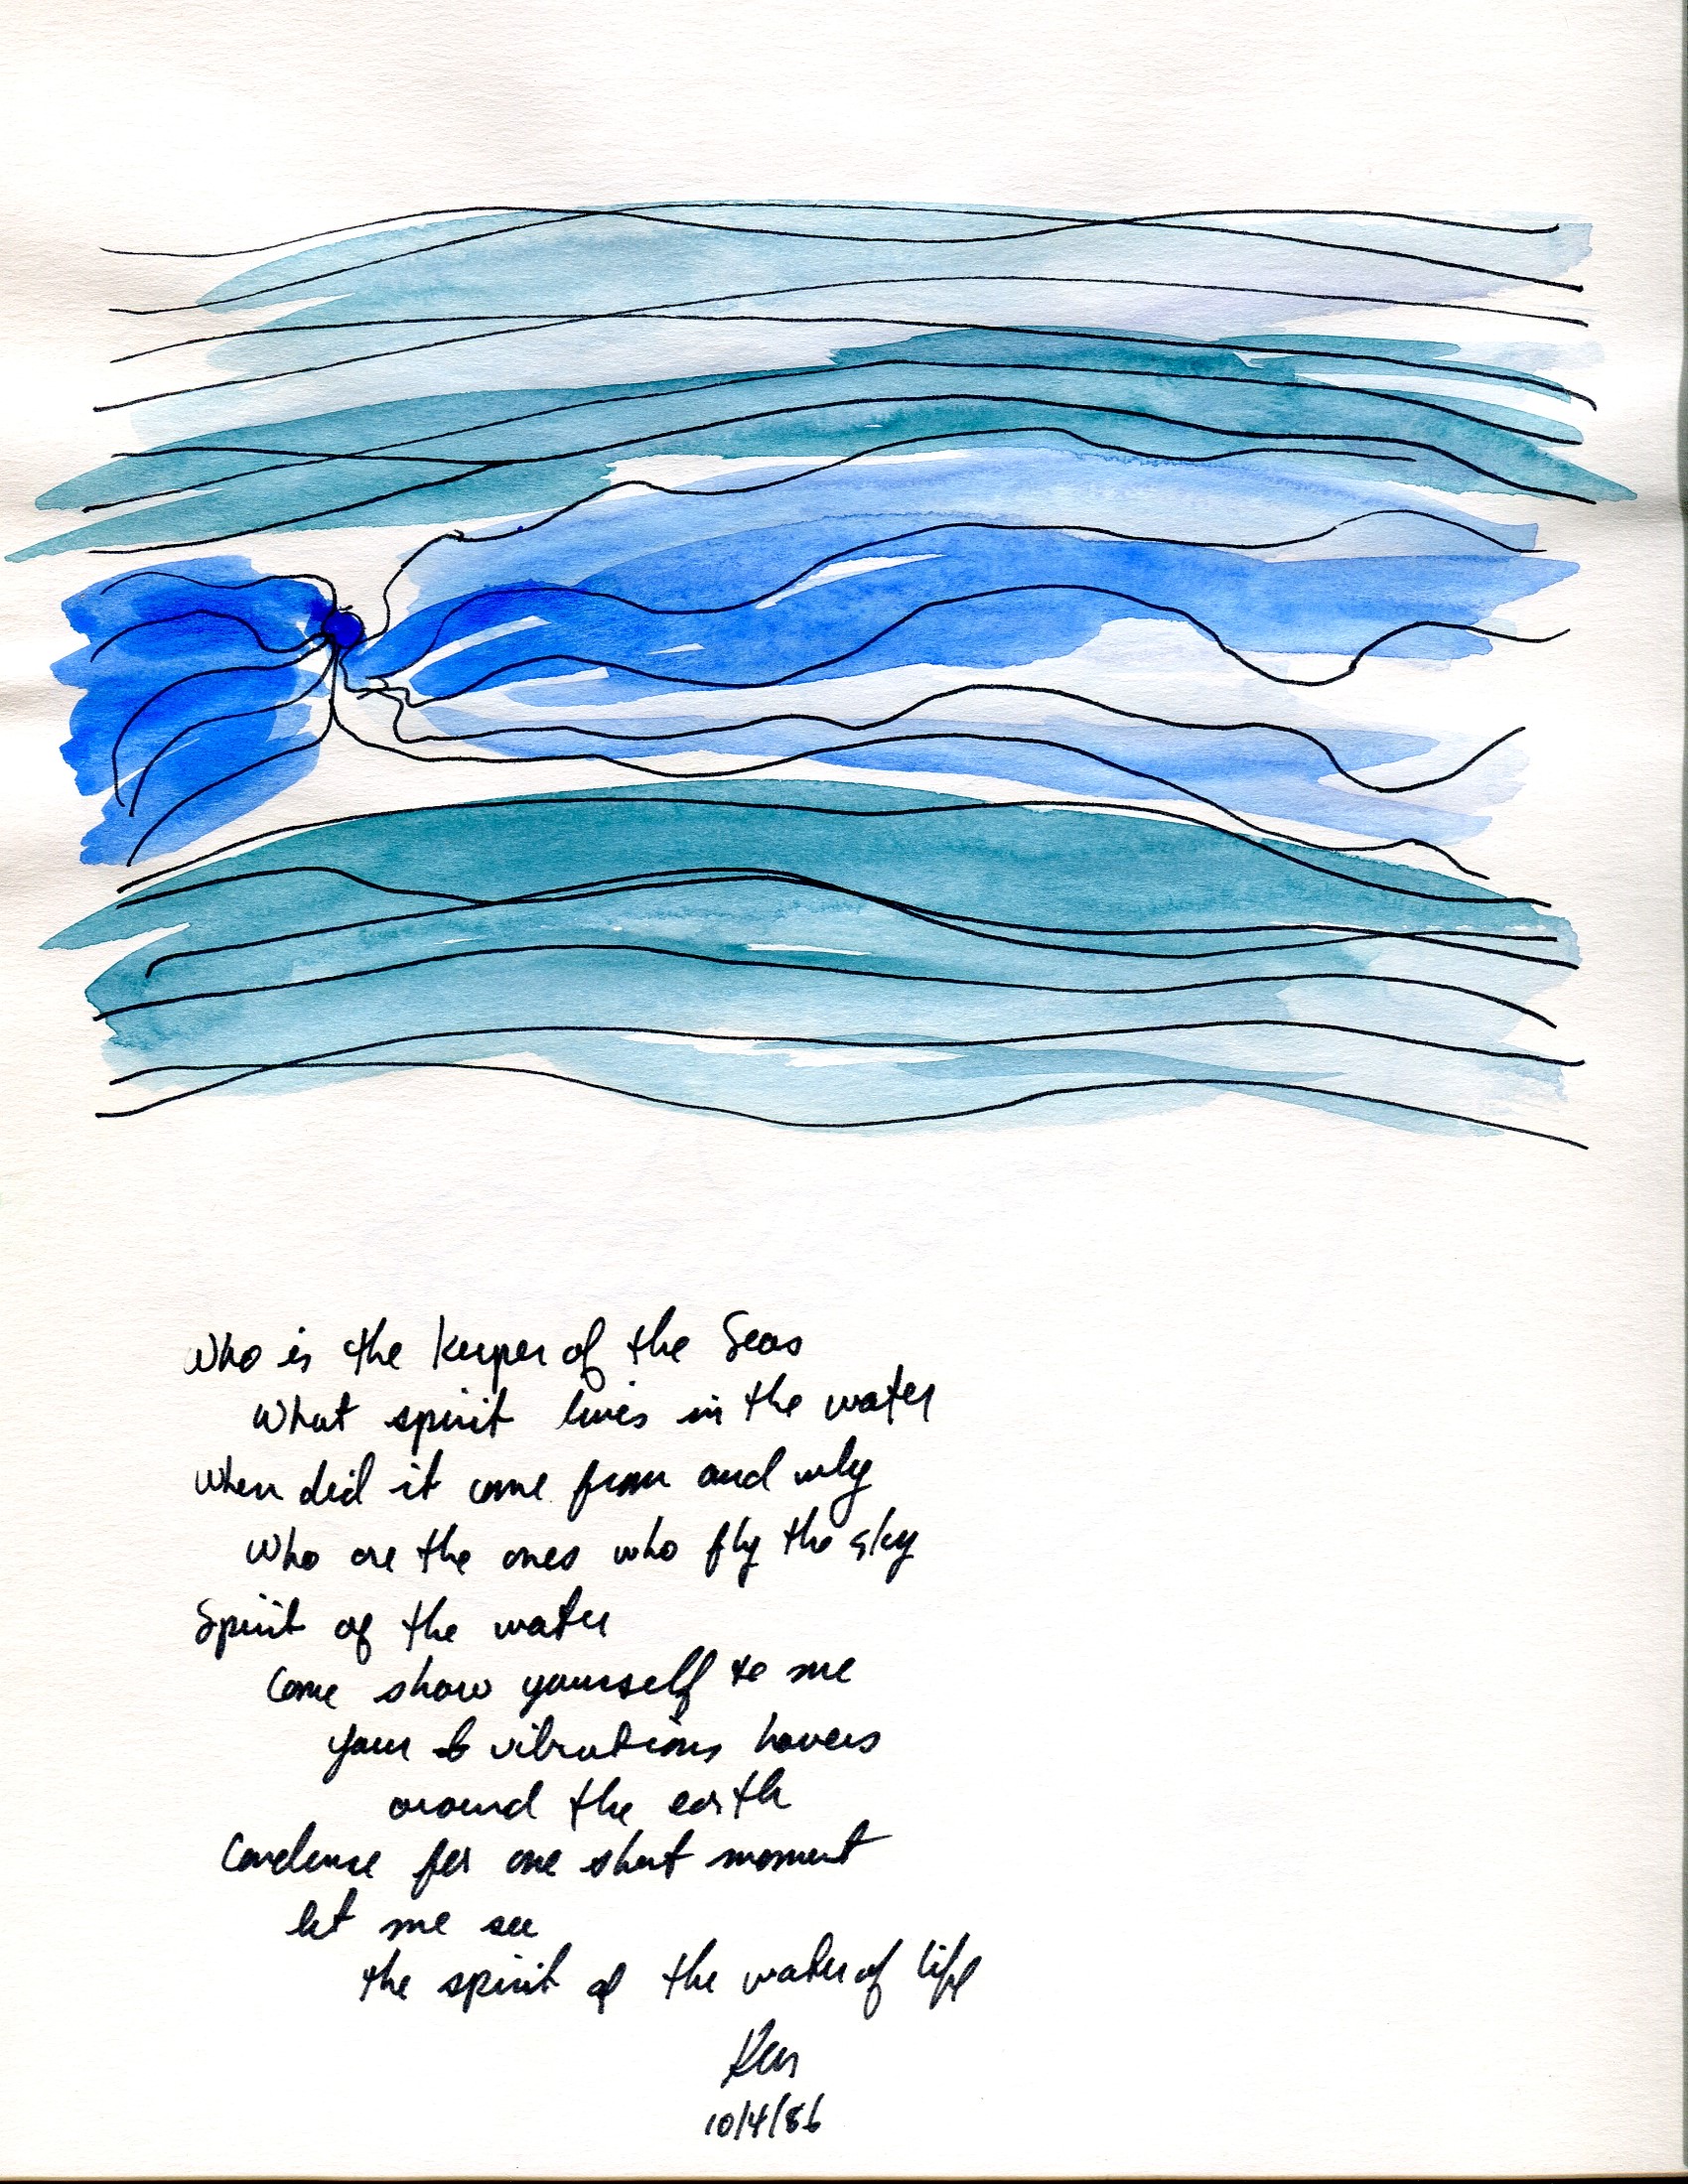 Who is the Keeper of the Seas
What spirit lives in the water
When did it come from and why
Who are the ones who fly the sky
Spirit of the water
Come show yourself to me
your vibrations hovers
around the earth
Condense for one short moment
let me see
the spirit of the water of life
Ken
10/4/86